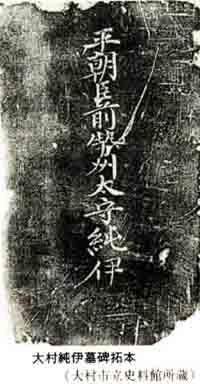 平朝臣前勢州太守純伊
大村純伊墓碑拓本
(大村市立史料館所蔵)